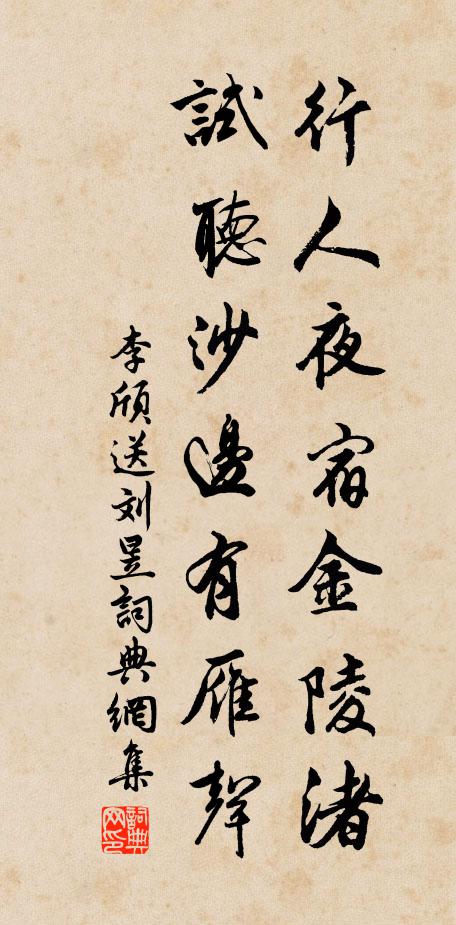 行人夜宿金陵渚
試聽沙邊有雁聲
李頎送刘昱詞典網集
詞典网印